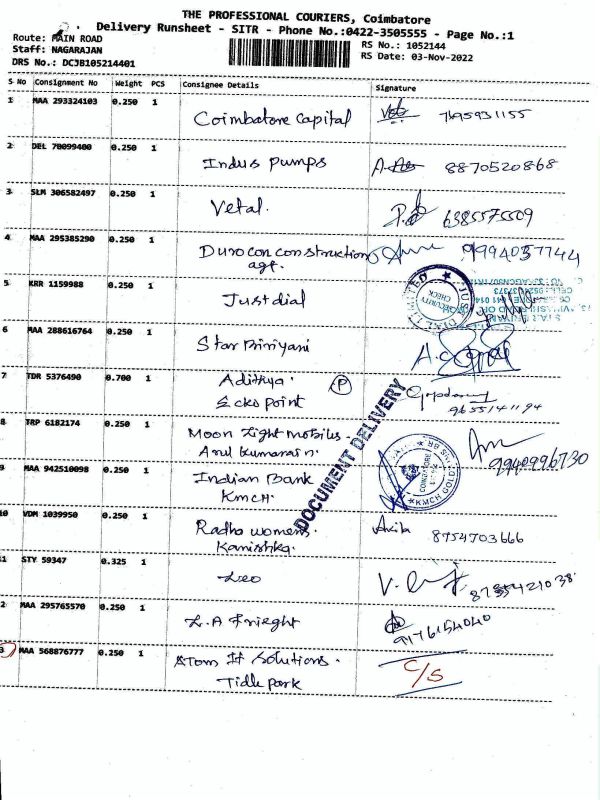 THE PROFESSIONAL COURIERS, Coimbatore
Delivery Runsheet - SITR - Phone No.:0422-3505555 - Page No.:1
Route: MAIN ROAD
Staff: NAGARAJAN
DRS No.: DCJB105214401
RS No.: 1052144
RS Date: 03-Nov-2022
S No Consignment No Weight PCS Consignee Details Signature
1 MAA 293324103 0.250 1 Coimbatore Capital 7695931155
2 DEL 70099400 0.250 1 Indus pumps 8870520868
3 SLM 306582497 0.250 1 Vetal. 6385575509
4 MAA 295385290 0.250 1 Durocon construction 9994037744
agt.
5 KRR 1159988 0.250 1 Justdial
SECURITY CHECK
6 MAA 288616764 0.250 1 Star Biriyani
7 TDR 5376490 0.700 1 Adithya. P
Ecko point 9655141194
DOCUMENT DELIVERY
8 TRP 6182174 0.250 1 Moon Light mobiles.
Arul Kumaran. 9940996730
9 MAA 942510098 0.250 1 Indian Bank
KMCH. COIMBATORE KMCH GOLD
10 VDM 1039950 0.250 1 Radha womens. 8754703666
Kanishka.
11 STY 59347 0.325 1 Leo
12 MAA 295765570 0.250 1 L.A Frieght 9176154040
13 MAA 568876777 0.250 1 Stom It Solutions. C/S
Tidle park